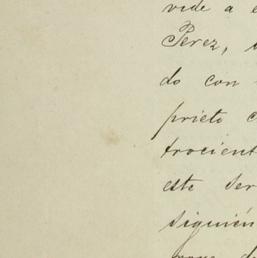 vide a
Perez,
do con
prieto
trocient
este ser
siguién